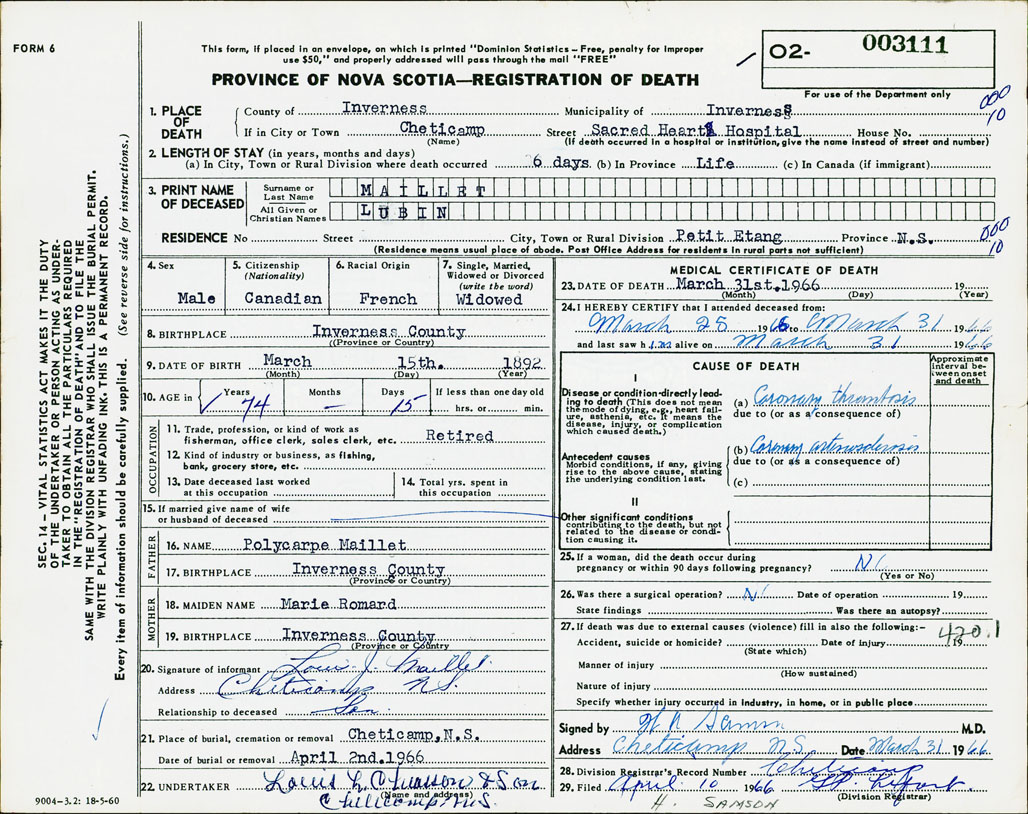 FORM 6
This form, if placed in an envelope, on which is printed "Dominion Statistics – Free, penalty for improper
use $50," and properly addressed will pass through the mail "FREE"
PROVINCE OF NOVA SCOTIA—REGISTRATION OF DEATH
O2- 003111
For use of the Department only
000
10
1. PLACE OF DEATH
County of Inverness Municipality of Inverness
If in City or Town Cheticamp Street Sacred Heart Hospital House No.
(Name) (If death occurred in a hospital or institution, give the name instead of street and number)
2. LENGTH OF STAY (in years, months and days)
(a) In City, Town or Rural Division where death occurred 6 days (b) In Province Life (c) In Canada (if immigrant)
3. PRINT NAME OF DECEASED
Surname or Last Name MAILLET
All Given or Christian Names LUBIN
RESIDENCE No Street City, Town or Rural Division Petit Etang Province N.S.
000
10
(Residence means usual place of abode. Post Office Address for residents in rural parts not sufficient)
4. Sex
Male
5. Citizenship
(Nationality)
Canadian
6. Racial Origin
French
7. Single, Married,
Widowed or Divorced
(write the word)
Widowed
8. BIRTHPLACE Inverness County
(Province or Country)
9. DATE OF BIRTH March 15th. 1892
(Month) (Day) (Year)
10. AGE in Years Months Days If less than one day old
74 – 15 hrs. or min.
OCCUPATION
11. Trade, profession, or kind of work as
fisherman, office clerk, sales clerk, etc. Retired
12. Kind of industry or business, as fishing,
bank, grocery store, etc.
13. Date deceased last worked
at this occupation
14. Total yrs. spent in
this occupation
15. If married give name of wife
or husband of deceased
FATHER
16. NAME Polycarpe Maillet
17. BIRTHPLACE Inverness County
(Province or Country)
MOTHER
18. MAIDEN NAME Marie Romard
19. BIRTHPLACE Inverness County
(Province or Country)
20. Signature of informant Louis J. Maillet
Address Cheticamp N.S.
Relationship to deceased Son
21. Place of burial, cremation or removal Cheticamp, N.S.
Date of burial or removal April 2nd. 1966
22. UNDERTAKER Louis L. Chiasson & Son
(Name and address)
Cheticamp N.S.
MEDICAL CERTIFICATE OF DEATH
23. DATE OF DEATH March 31st. 1966 19
(Month) (Day) (Year)
24. I HEREBY CERTIFY that I attended deceased from:
March 25 1966 to March 31 1966
and last saw him alive on March 31 1966
CAUSE OF DEATH
Approximate
interval be-
tween onset
and death
I
Disease or condition directly lead-
ing to death (This does not mean
the mode of dying, e.g., heart fail-
ure, asthenia, etc. It means the
disease, injury, or complication
which caused death.)
(a) Coronary thrombosis
due to (or as a consequence of)
Antecedent causes
Morbid conditions, if any, giving
rise to the above cause, stating
the underlying condition last.
(b) Coronary arteriosclerosis
due to (or as a consequence of)
(c)
II
Other significant conditions
contributing to the death, but not
related to the disease or condi-
tion causing it.
25. If a woman, did the death occur during
pregnancy or within 90 days following pregnancy?
(Yes or No)
26. Was there a surgical operation? Date of operation 19
State findings Was there an autopsy?
27. If death was due to external causes (violence) fill in also the following:–
420.1
Accident, suicide or homicide? Date of injury 19
(State which)
Manner of injury
(How sustained)
Nature of injury
Specify whether injury occurred in industry, in home, or in public place
Signed by M.D.
Address Cheticamp N.S. Date March 31 1966
28. Division Registrar's Record Number Cheticamp
29. Filed April 10 1966
(Division Registrar)
H. SAMSON
SEC. 14 – VITAL STATISTICS ACT MAKES IT THE DUTY
OF THE UNDERTAKER OR PERSON ACTING AS UNDER-
TAKER TO OBTAIN ALL THE PARTICULARS REQUIRED
IN THE "REGISTRATION OF DEATH" AND TO FILE THE
SAME WITH THE DIVISION REGISTRAR WHO SHALL ISSUE THE BURIAL PERMIT.
WRITE PLAINLY WITH UNFADING INK. THIS IS A PERMANENT RECORD.
Every item of information should be carefully supplied. (See reverse side for instructions.)
9004-3.2: 18-5-60